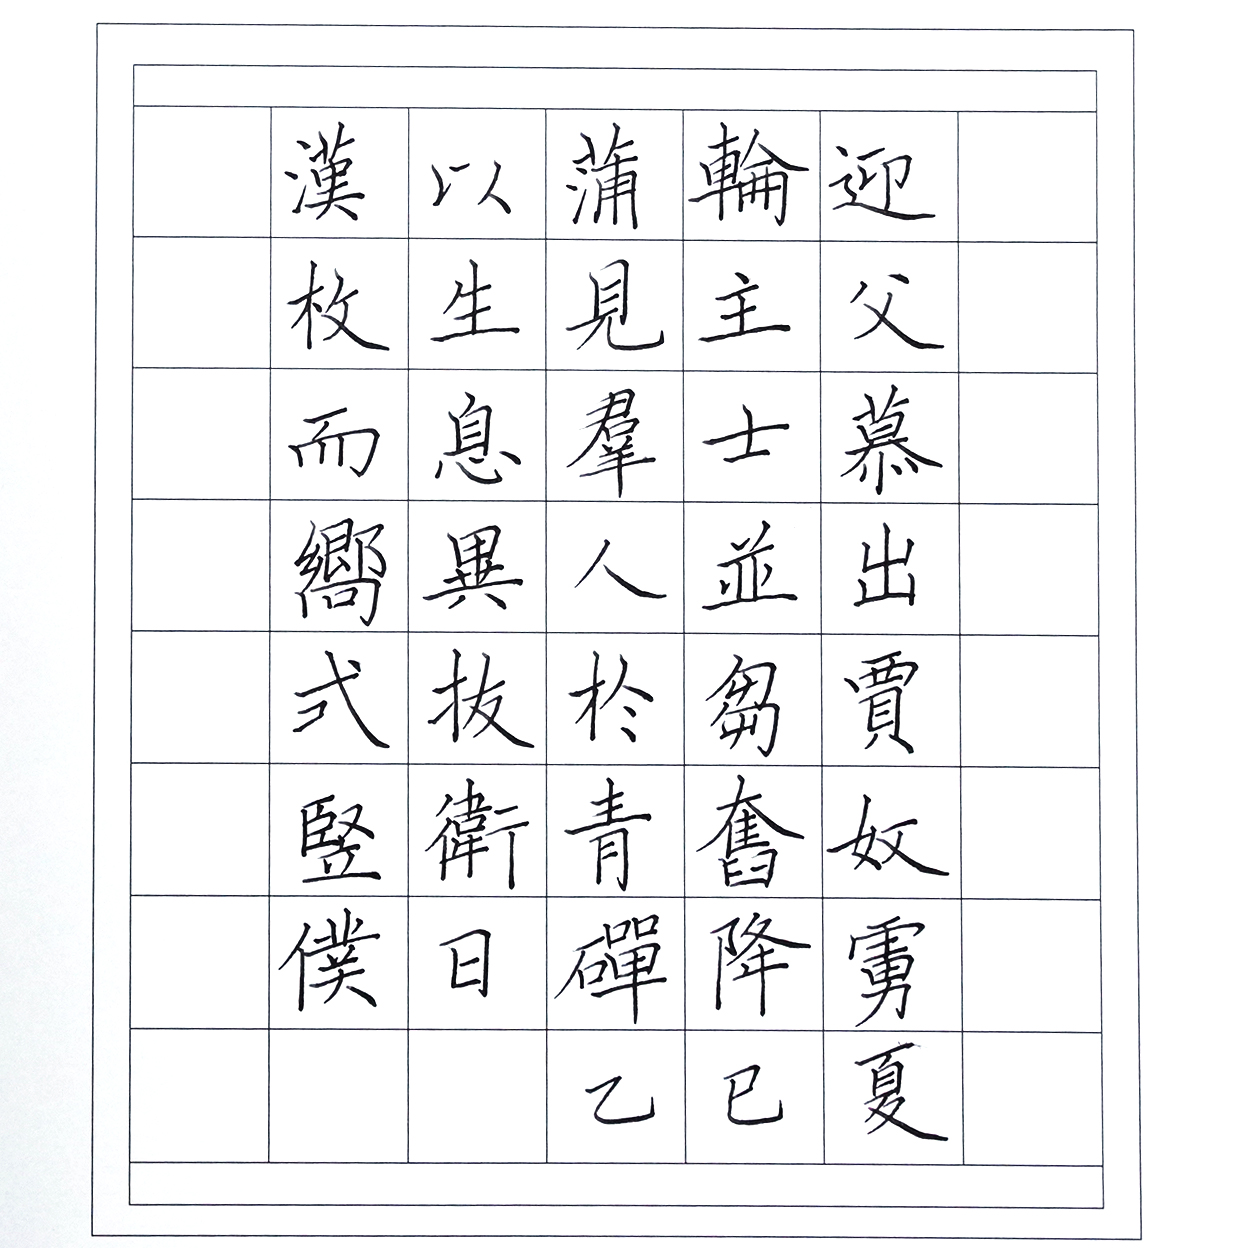 漢以蒲輪迎
枚生見主父
而息羣士慕
嚮異人並出
式拔於芻賈
豎衛青奮奴
僕日磾降虜
乙巳夏